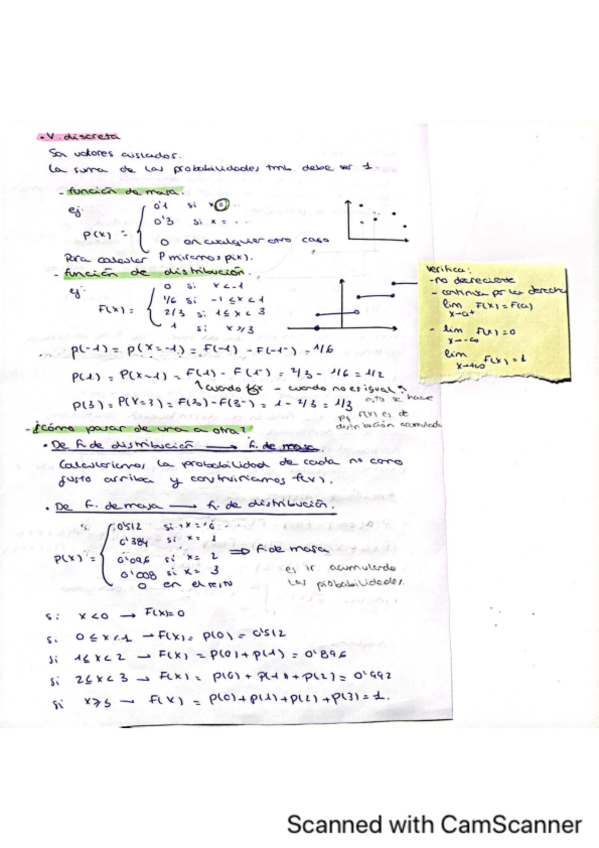 • V. discreta
Son valores aislados.
La suma de las probabilidades tmb. debe ser 1.
- función de masa.
ej:
P(x) =
0'1 si x=0
0'3 si x = ...
0 en cualquier otro caso
Para calcular P miramos p(x).
- función de distribución.
ej:
F(x) =
0 si x<-1
1/6 si -1≤x<1
2/3 si 1≤x<3
1 si x≥3
verifica:
- no decreciente
- continua por la derecha
lim F(x)=F(a)
x→a+
- lim F(x)=0
x→-∞
lim F(x)=1
x→+∞
P(-1) = P(X=-1) = F(-1) - F(-1⁻) = 1/6
P(1) = P(X=1) = F(1) - F(1⁻) = 2/3 - 1/6 = 1/2
- cuando no es igual
P(3) = P(X=3) = F(3) - F(3⁻) = 1 - 2/3 = 1/3
esto se hace
pq F(x) es de
distribución acumulada
- ¿Cómo pasar de una a otra?
• De f. de distribución → f. de masa.
Calcularíamos la probabilidad de cada no como
justo arriba y construiríamos f(x).
• De f. de masa → f. de distribución.
P(x) =
0'512 si x=0
0'384 si x= 1
0'096 si x= 2
0'008 si x= 3
0 en el resto
⇒ f. de masa
es ir acumulando
las probabilidades.
si x<0 → F(x)=0
si 0≤x<1 → F(x)= p(0) = 0'512
si 1≤x<2 → F(x) = p(0)+p(1) = 0'896
si 2≤x<3 → F(x) = p(0)+p(1)+p(2) = 0'992
si x≥3 → F(x) = p(0)+p(1)+p(2)+p(3)=1.
Scanned with CamScanner